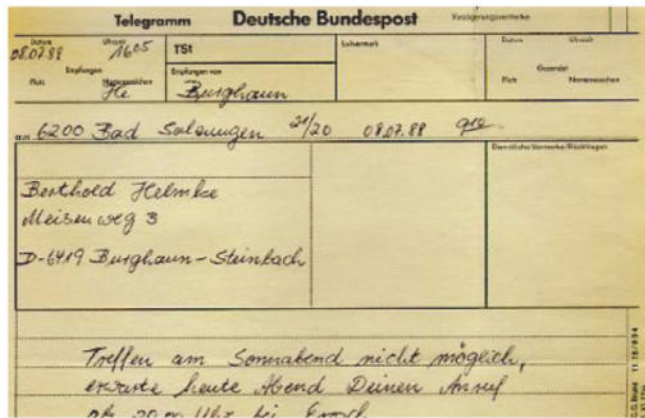 Telegramm Deutsche Bundespost Verzögerungsvermerke
Datum Uhrzeit TSt Leitvermerk Datum Uhrzeit
08.07.88 1605
Empfangen Empfangen von Gesendet
Platz Namenszeichen Platz Namenszeichen
He Burghaun
aus 6200 Bad Salzungen 21/20 08.07.88 910
Dienstliche Vermerke/Rückfragen
Berthold Helmke
Meisenweg 3
D-6419 Burghaun-Steinbach
Treffen am Sonnabend nicht möglich,
erwarte heute Abend Deinen Anruf
ab 20.00 Uhr bei